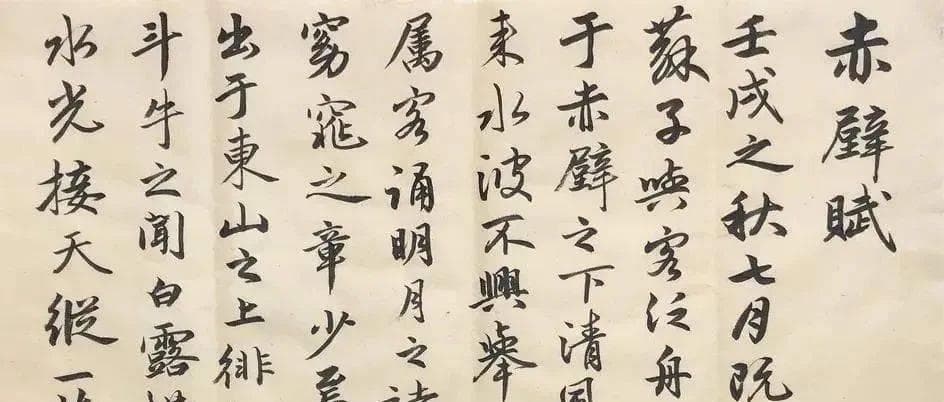 赤壁賦
壬戌之秋七月既
蘇子與客泛舟
于赤壁之下清風
来水波不興舉
属客诵明月之詩
窈窕之章少焉
出于東山之上徘
斗牛之間白露
水光接天縱一